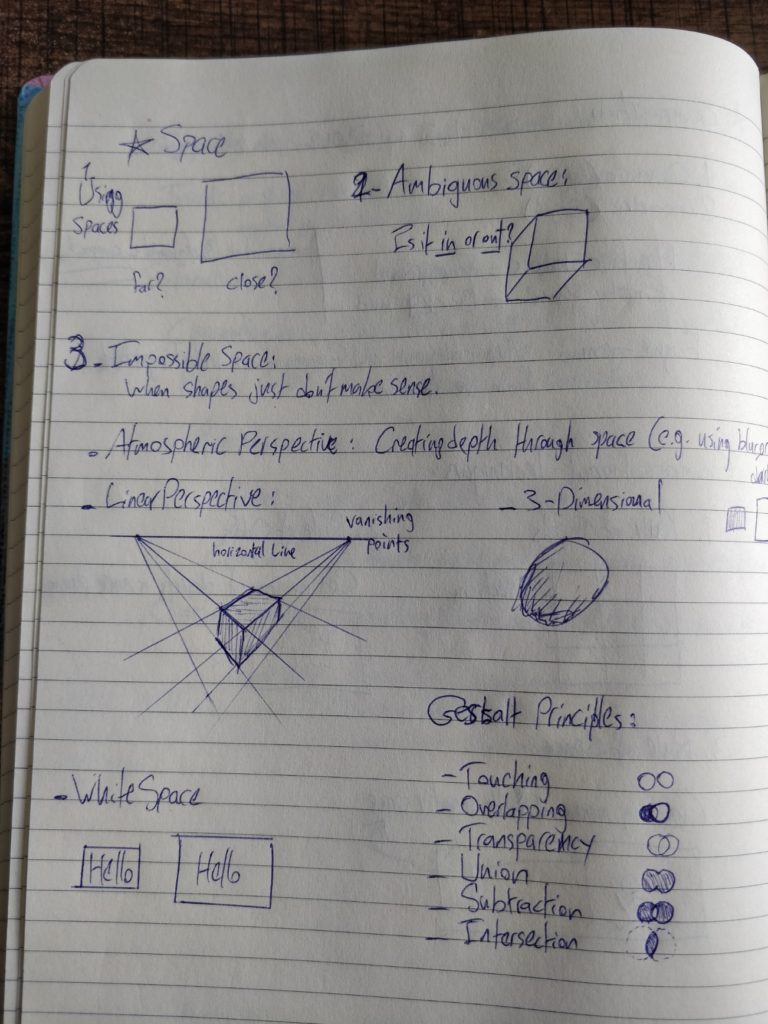 ☆ Space
1 Using
Spaces
far? close?
2- Ambiguous space:
Is it in or out?
3- Impossible Space:
When shapes just don't make sense.
• Atmospheric Perspective: Creating depth through space (e.g. using
- Linear Perspective:
vanishing
points
horizontal Line
- 3-Dimensional
Gestalt Principles:
- Touching
- Overlapping
- Transparency
- Union
- Subtraction
- Intersection
- White Space
Hello Hello